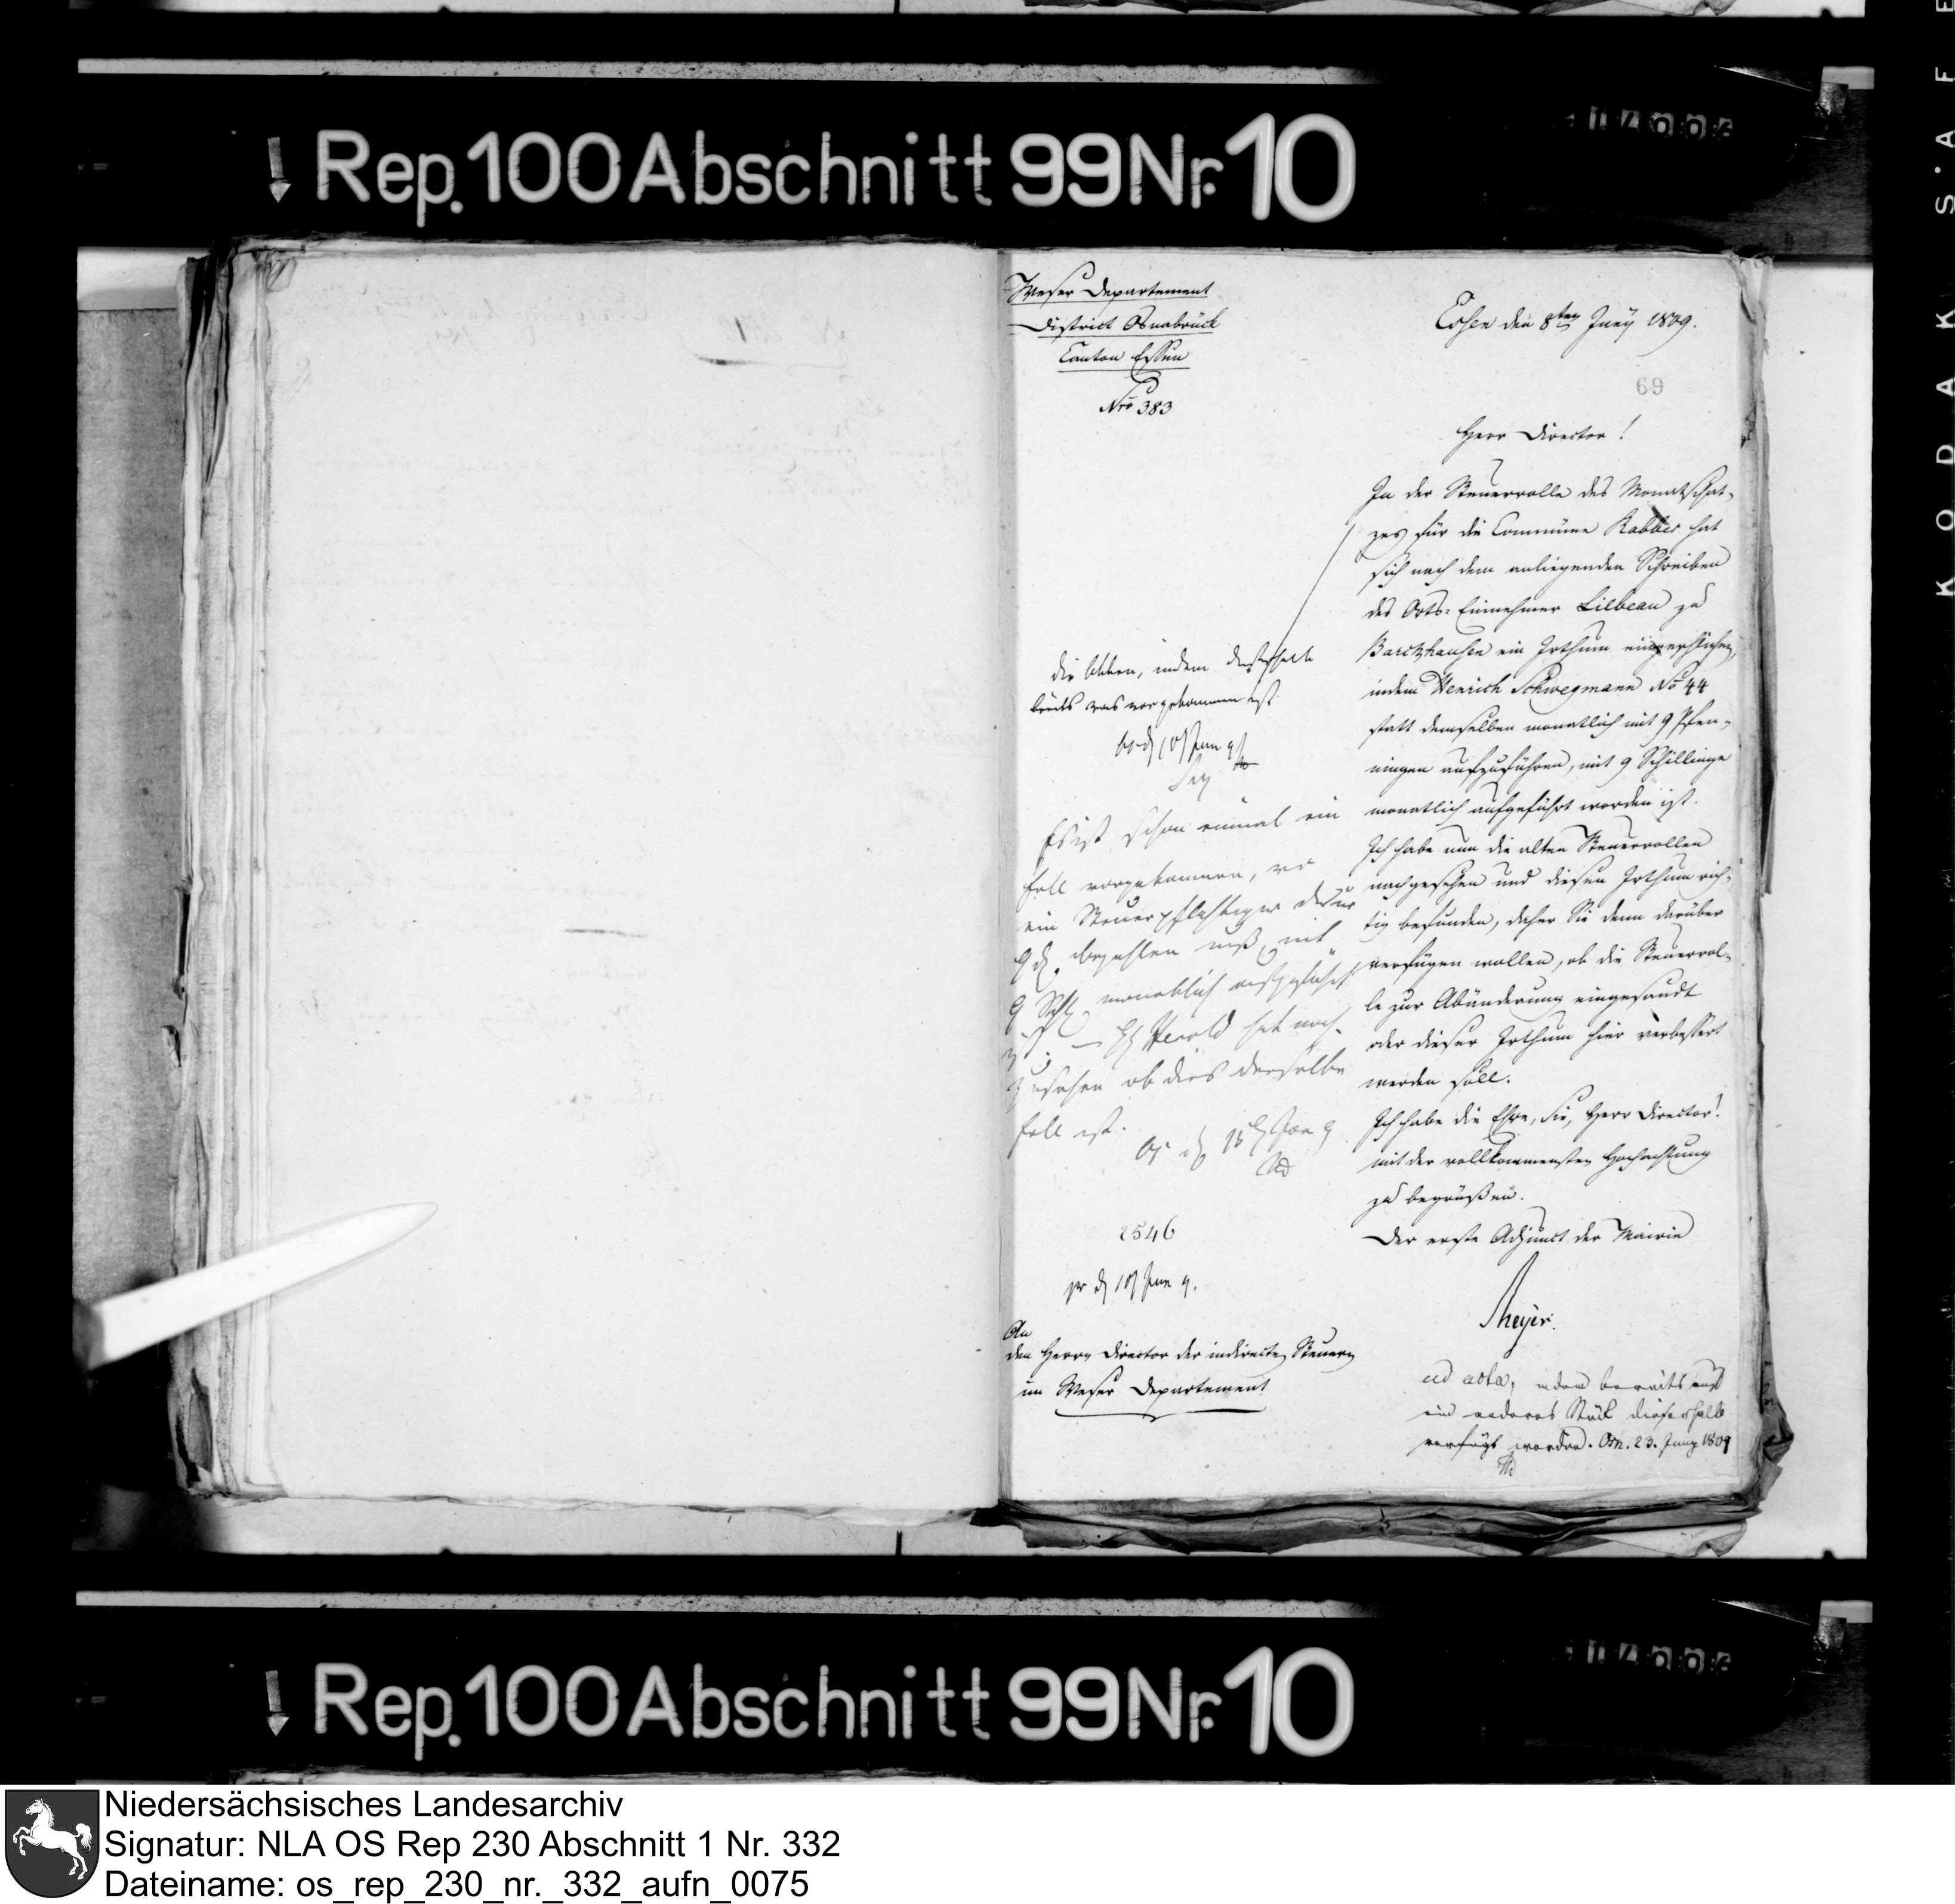 Rep. 100 Abschnitt 99 Nr. 10
Weser Departement
District Osnabrück
Canton Essen
Nro 383
Essen den 8ten Juny 1809.
69
Herr Director!
In der Steuerrolle des Monatschat-
zes für die Commüne Rabber hat
sich nach dem anliegenden Schreiben
des Orts-Einnehmer Lilbeau zu
Barckhausen ein Irthum eingeschlichen,
indem Henrich Schwegmann No 44
statt demselben monatlich mit 9 Pfen-
ningen aufzuführen, mit 9 Schillinge
monatlich aufgeführt worden ist.
Ich habe nun die alten Steuerrollen
nachgesehen und diesen Irthum rich-
tig befunden, daher Sie denn darüber
verfügen wollen, ob die Steuerrol-
le zur Abänderung eingesandt
oder dieser Irthum hier verbessert
werden soll.
Ich habe die Ehre, Sie, Herr Director!
mit der vollkommensten Hochachtung
zu begrüßen.
Der erste Adjunct der Mairie
Meyer.
ad acta, indem bereits auf
ein anderes Stück dieserhalb
verfügt worden. Osn. 23. Juny 1809
die indem dieserhalb
bereits was vorgekommen ist.
Es ist schon einmal ein
Fall vorgekommen, wo
ein Steuerpflichtiger der nur
9 d. bezahlen muß, mit
9 Schl. monatlich aufgeführt
ist. — H Herold hat nach-
zusehen ob dies derselbe
Fall ist.
2546
pr d 10 Jun 9.
An
den Herrn Director der indirecten Steuern
im Weser Departement
Rep. 100 Abschnitt 99 Nr. 10
KODAK SAFE
Niedersächsisches Landesarchiv
Signatur: NLA OS Rep 230 Abschnitt 1 Nr. 332
Dateiname: os_rep_230_nr._332_aufn_0075